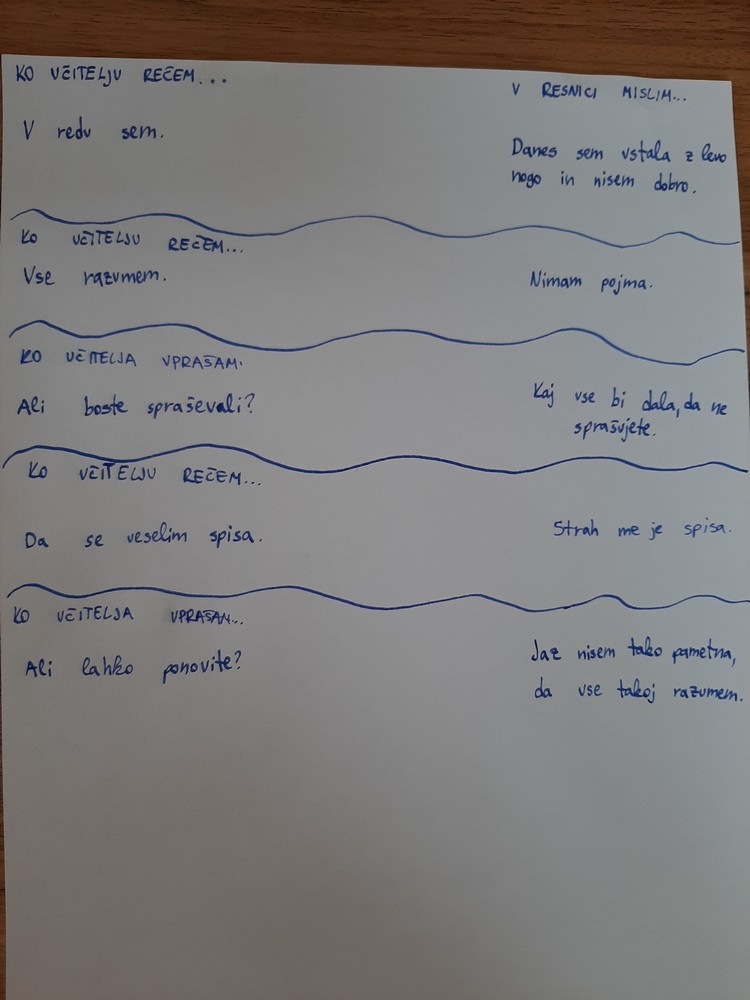 KO UČITELJU REČEM...
V RESNICI MISLIM...
V redu sem.
Danes sem vstala z levo
nogo in nisem dobro.
KO UČITELJU REČEM...
Vse razumem.
Nimam pojma.
KO UČITELJA VPRAŠAM.
Ali boste spraševali?
Kaj vse bi dala, da ne
sprašujete.
KO UČITELJU REČEM...
Da se veselim spisa.
Strah me je spisa.
KO UČITELJA VPRAŠAM...
Ali lahko ponovite?
Jaz nisem tako pametna,
da vse takoj razumem.